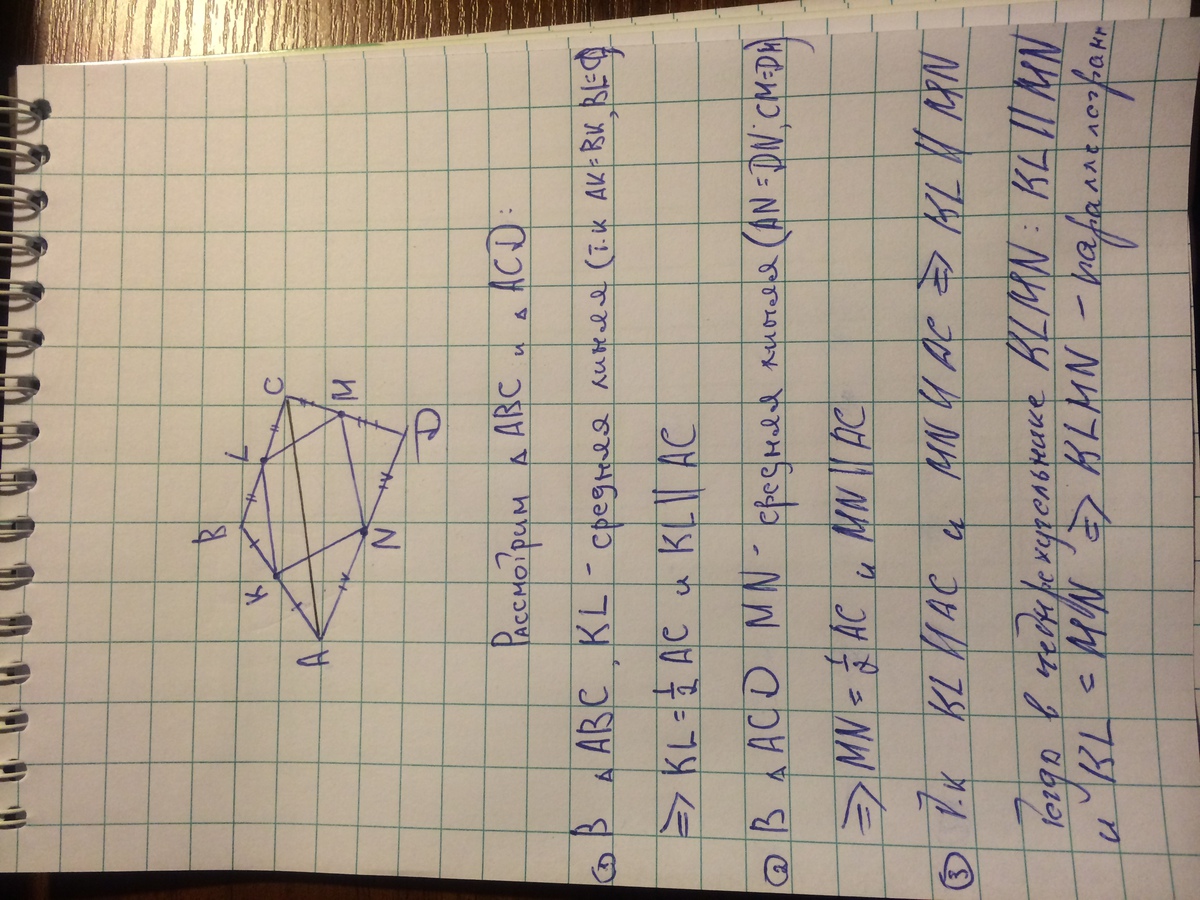 B
L
C
K
M
A
N
D
Рассмотрим △ ABC и △ ACD:
① В △ ABC, KL - средняя линия (т.к AK = BK, BL=
⇒ KL = 1/2 AC и KL || AC
② В △ ACD MN - средняя линия (AN = DN; CM=DM)
⇒ MN = 1/2 AC и MN || AC
③ Т.к KL || AC и MN || AC ⇒ KL || MN
Тогда в четырехугольнике KLMN: KL || MN
и KL = MN ⇒ KLMN - параллелограмм